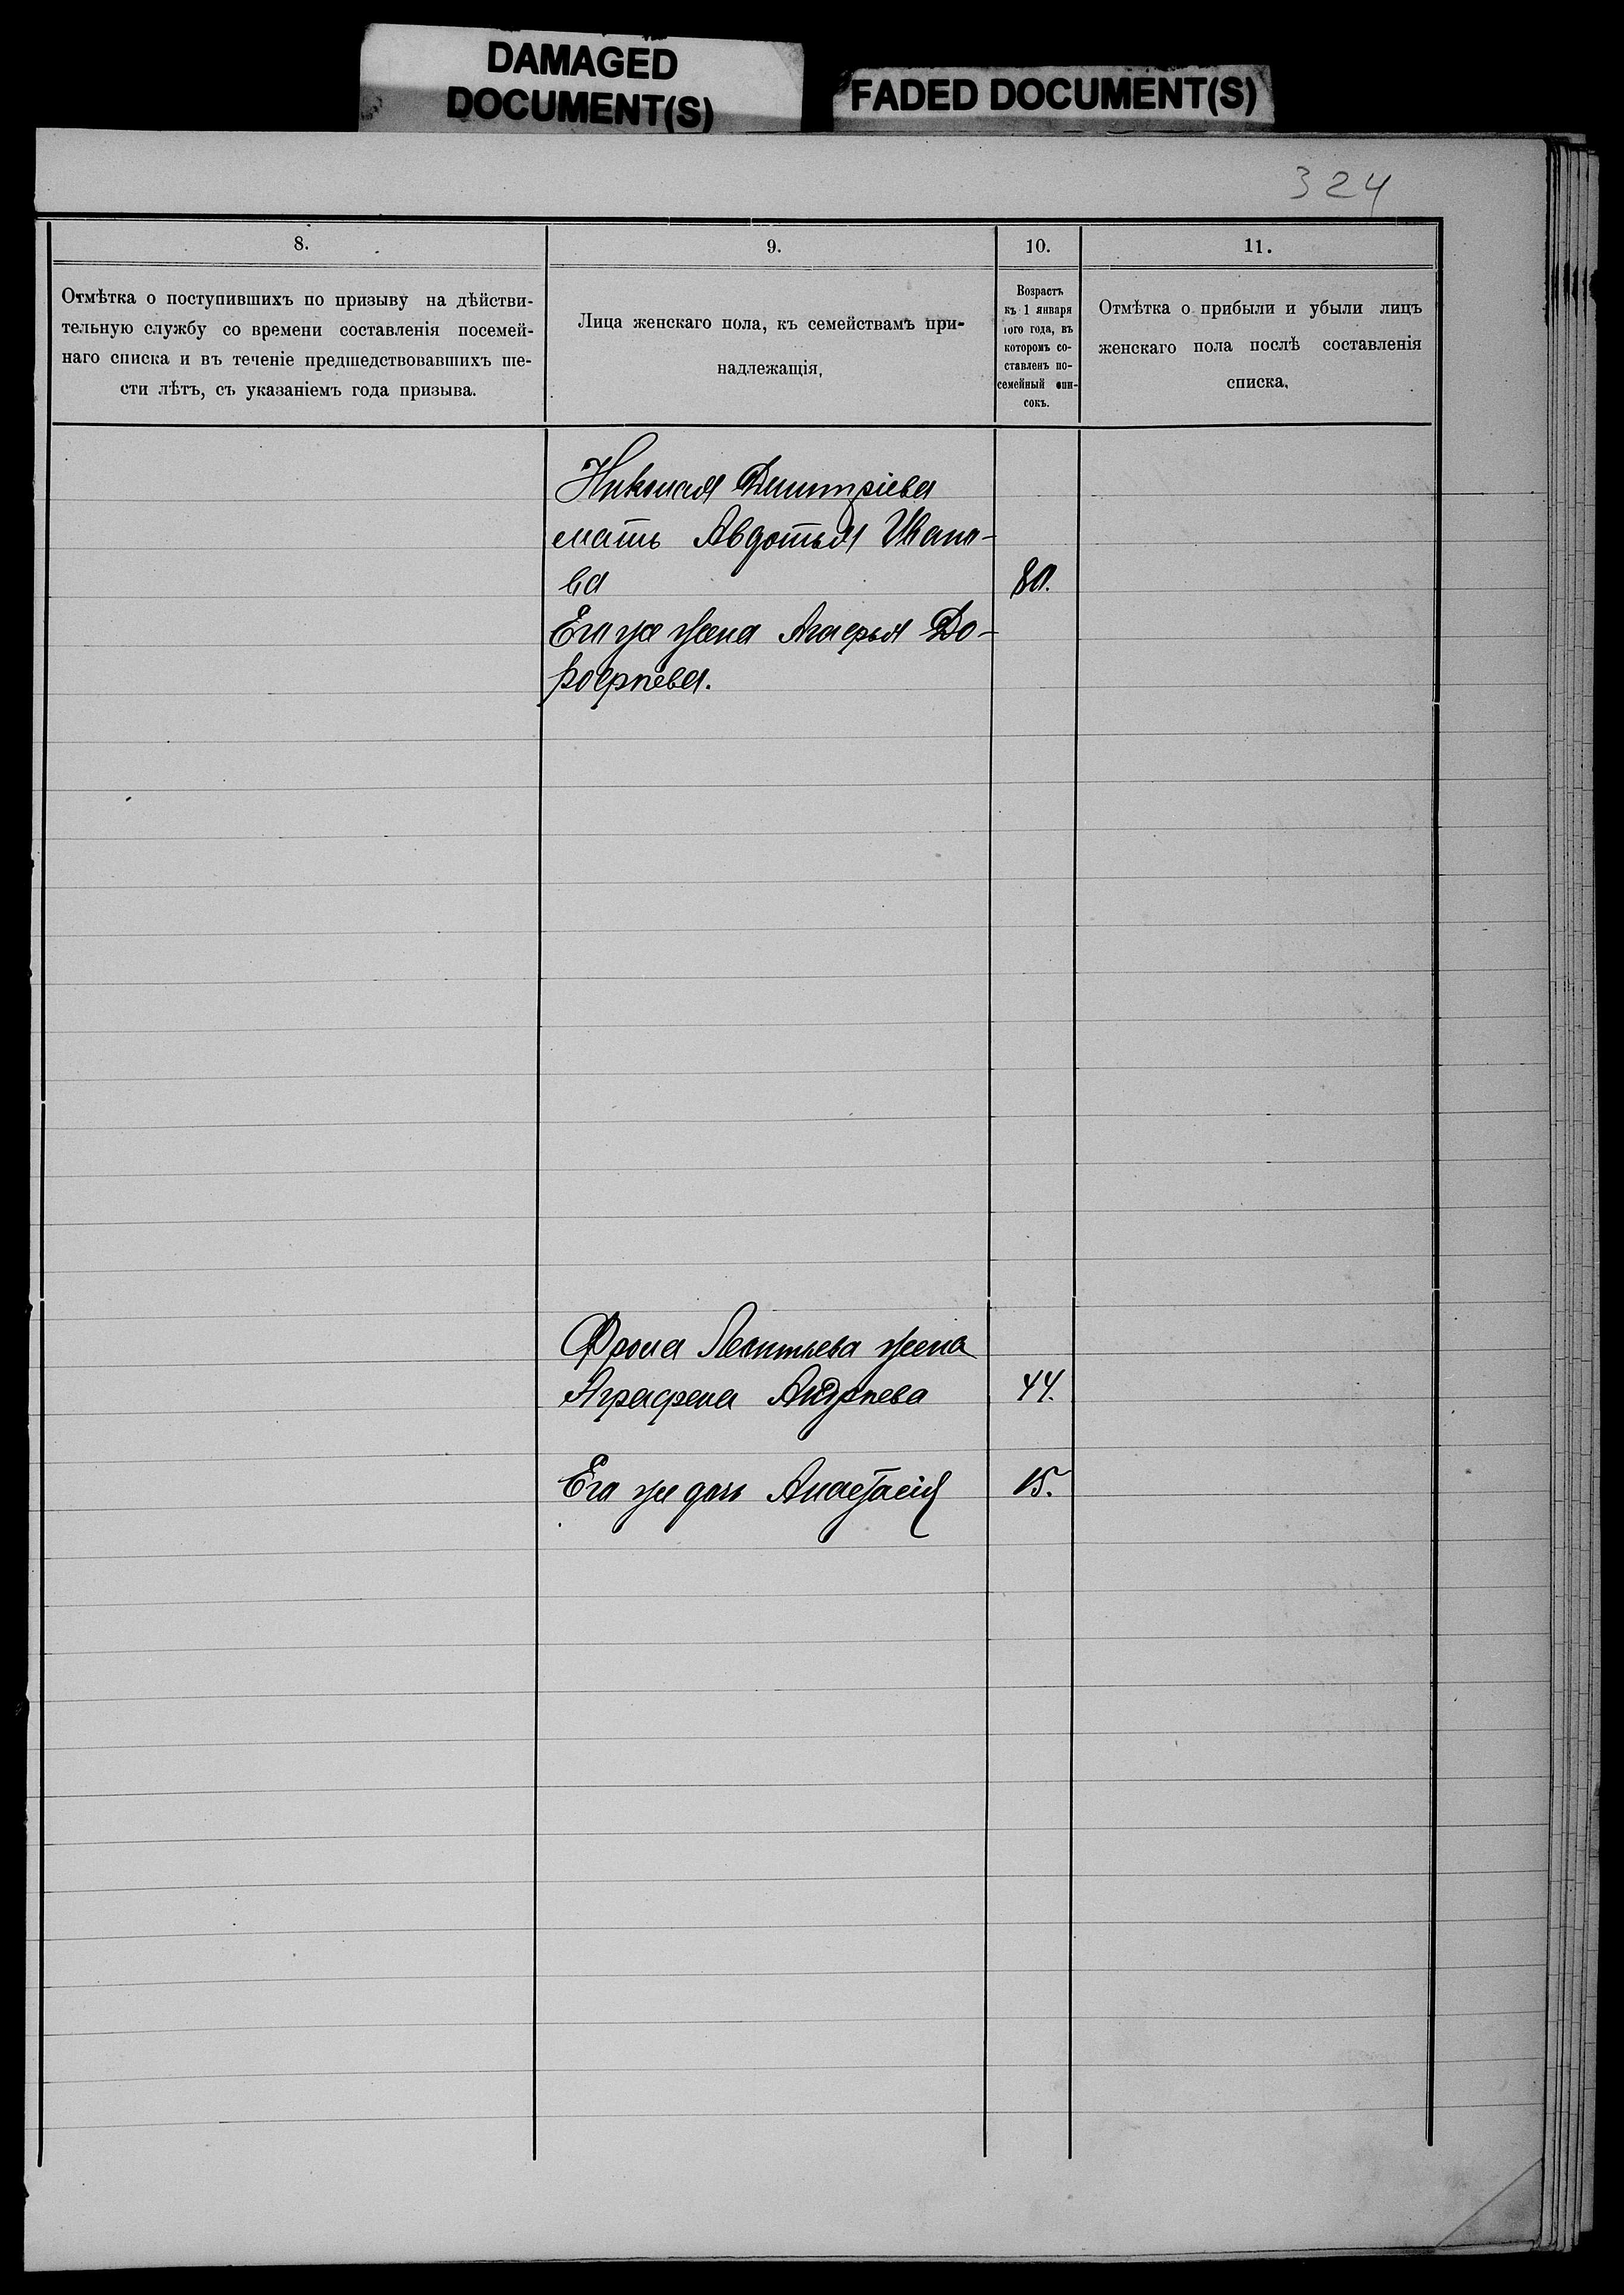 DAMAGED
DOCUMENT(S)
FADED DOCUMENT(S)
324
8.
Отмѣтка о поступившихъ по призыву на дѣйстви-
тельную службу со времени составленія посемей-
наго списка и въ теченіе предшедствовавшихъ ше-
сти лѣтъ, съ указаніемъ года призыва.
9.
Лица женскаго пола, къ семействамъ при-
надлежащія,
10.
Возрастъ
къ 1 января
того года, въ
которомъ со-
ставленъ по-
семейный спи-
сокъ.
11.
Отмѣтка о прибыли и убыли лицъ
женскаго пола послѣ составленія
списка.
Николая Дмитріева
мать Авдотья Ивано-
ва 80.
Его же жена Агафья До-
рофѣева.
Фрола Леонтьева жена
Аграфена Андрѣева 44.
Его же дочь Анастасія 15.